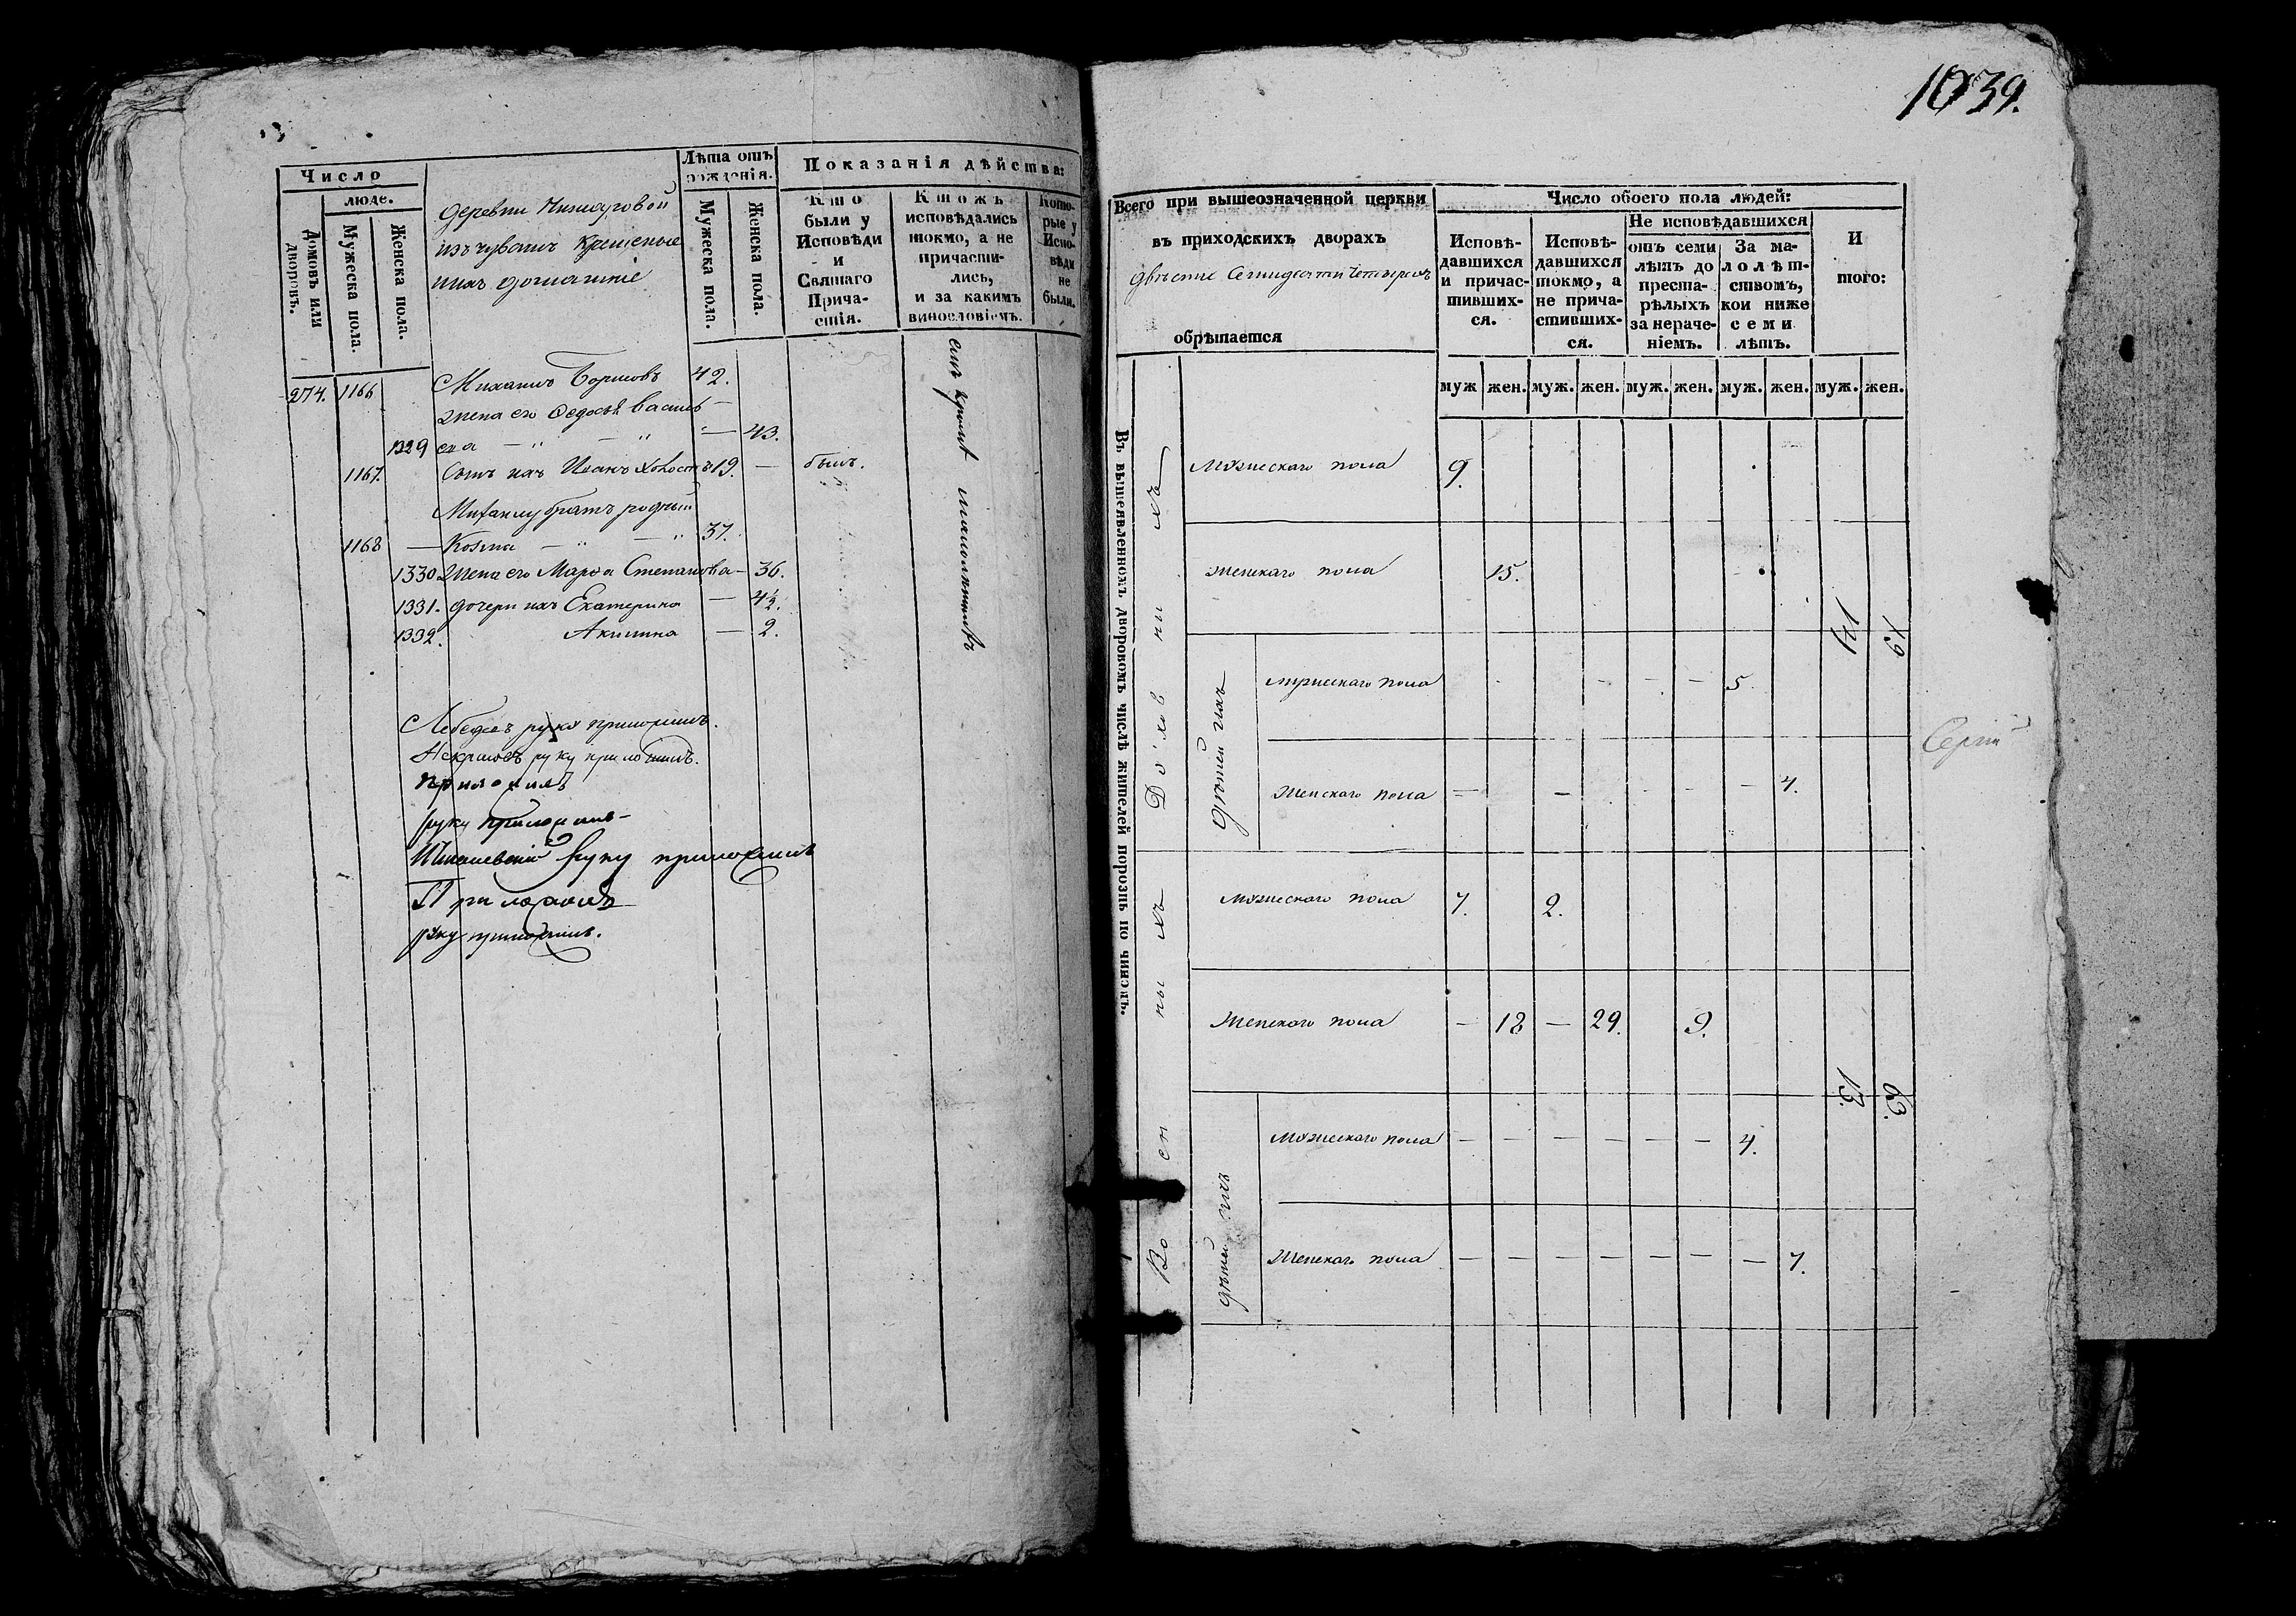 Число
люде.
Домовъ или дворовъ.
Мужеска пола.
Женска пола.
деревни
изъ чувашъ крещеные
ихъ домашніе
Лѣта отъ рожденія.
Мужеска пола.
Женска пола.
Показанія дѣйства:
Кто были у Исповѣди и Святаго Причастія.
Ктожъ исповѣдались токмо, а не причастились, и за какимъ винословіемъ.
Которые у Исповѣди не были.
274. 1166 Михаилъ Борисовъ 42.
жена его Федосья Василь
1329 ева — " — " — 43.
1167. Сынъ ихъ Иванъ холостъ 19. — былъ.
Михаилу братъ родный
1168 — Козма — " — " 37.
1330 Жена его Марѳа Степанова — 36.
1331. дочери ихъ Екатерина — 4½.
1332. Акилина — 2.
кромѣ малолѣтнихъ
Лебедевъ руку приложилъ.
Некрасовъ руку приложилъ.
приложилъ
руку приложилъ
руку приложилъ
Приложилъ
руку приложилъ.
1039.
Всего при вышеозначенной церкви
въ приходскихъ дворахъ
двѣсти Семидесяти четырехъ
обрѣтается
Число обоего пола людей:
Исповѣдавшихся и причастившихся.
Исповѣдавшихся токмо, а не причастившихся.
Не исповѣдавшихся
отъ семи лѣтъ до престарѣлыхъ за нераченіемъ.
За малолѣтствомъ, кои ниже семи лѣтъ.
И того:
муж жен. муж. жен. муж. жен. муж. жен. муж. жен.
Въ вышеявленномъ дворовомъ числѣ жителей порознь по чинамъ.
Духовныхъ
Мужескаго пола 9.
Женскаго пола 15.
дѣтей ихъ
мужескаго пола — — — 5.
Женскаго пола — — — — — 4.
19
Военныхъ
Мужескаго пола 7. 2.
Женскаго пола — 18 — 29. 9.
дѣтей ихъ
Мужескаго пола — — — — — — 4.
Женскаго пола — — — — — — — 7.
13. 63.
Сергій